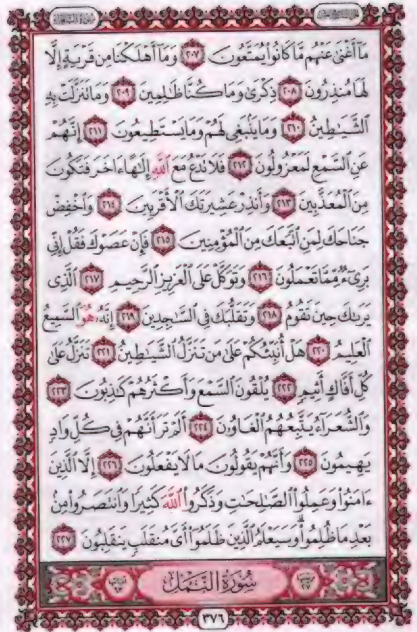 مَا أَغْنَىٰ عَنْهُم مَّا كَانُوا۟ يُمَتَّعُونَ ٢٠٧ وَمَا أَهْلَكْنَا مِن قَرْيَةٍ إِلَّا
لَهَا مُنذِرُونَ ٢٠٨ ذِكْرَىٰ وَمَا كُنَّا ظَٰلِمِينَ ٢٠٩ وَمَا تَنَزَّلَتْ بِهِ
ٱلشَّيَٰطِينُ ٢١٠ وَمَا يَنۢبَغِى لَهُمْ وَمَا يَسْتَطِيعُونَ ٢١١ إِنَّهُمْ
عَنِ ٱلسَّمْعِ لَمَعْزُولُونَ ٢١٢ فَلَا تَدْعُ مَعَ ٱللَّهِ إِلَٰهًا ءَاخَرَ فَتَكُونَ
مِنَ ٱلْمُعَذَّبِينَ ٢١٣ وَأَنذِرْ عَشِيرَتَكَ ٱلْأَقْرَبِينَ ٢١٤ وَٱخْفِضْ
جَنَاحَكَ لِمَنِ ٱتَّبَعَكَ مِنَ ٱلْمُؤْمِنِينَ ٢١٥ فَإِنْ عَصَوْكَ فَقُلْ إِنِّى
بَرِىٓءٌ مِّمَّا تَعْمَلُونَ ٢١٦ وَتَوَكَّلْ عَلَى ٱلْعَزِيزِ ٱلرَّحِيمِ ٢١٧ ٱلَّذِى
يَرَىٰكَ حِينَ تَقُومُ ٢١٨ وَتَقَلُّبَكَ فِى ٱلسَّٰجِدِينَ ٢١٩ إِنَّهُۥ هُوَ ٱلسَّمِيعُ
ٱلْعَلِيمُ ٢٢٠ هَلْ أُنَبِّئُكُمْ عَلَىٰ مَن تَنَزَّلُ ٱلشَّيَٰطِينُ ٢٢١ تَنَزَّلُ عَلَىٰ
كُلِّ أَفَّاكٍ أَثِيمٍ ٢٢٢ يُلْقُونَ ٱلسَّمْعَ وَأَكْثَرُهُمْ كَٰذِبُونَ ٢٢٣
وَٱلشُّعَرَآءُ يَتَّبِعُهُمُ ٱلْغَاوُۥنَ ٢٢٤ أَلَمْ تَرَ أَنَّهُمْ فِى كُلِّ وَادٍ
يَهِيمُونَ ٢٢٥ وَأَنَّهُمْ يَقُولُونَ مَا لَا يَفْعَلُونَ ٢٢٦ إِلَّا ٱلَّذِينَ
ءَامَنُوا۟ وَعَمِلُوا۟ ٱلصَّٰلِحَٰتِ وَذَكَرُوا۟ ٱللَّهَ كَثِيرًا وَٱنتَصَرُوا۟ مِنۢ
بَعْدِ مَا ظُلِمُوا۟ وَسَيَعْلَمُ ٱلَّذِينَ ظَلَمُوٓا۟ أَىَّ مُنقَلَبٍ يَنقَلِبُونَ ٢٢٧
سُورَةُ ٱلنَّمْلِ
٣٧٦